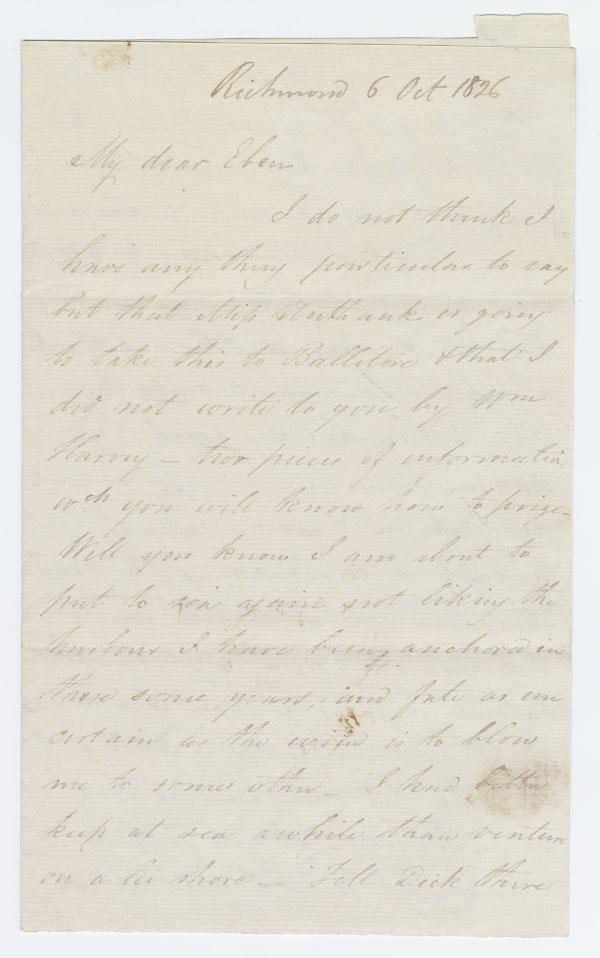 Richmond 6 Oct 1826
My dear Eben
I do not think I
have any thing particular to say
but that Miss Unthank is going
to take this to Ballitore & that I
did not write to you by Wm
Harvey – two pieces of information
wch you will know how to prize –
Will you know I am about to
put to sea again not liking the
harbour I have been anchored in
these some years, and fate as un
certain as the wind is to blow
me to some other – I had better
keep at sea awhile than venture
on a lee shore – Tell Dick there